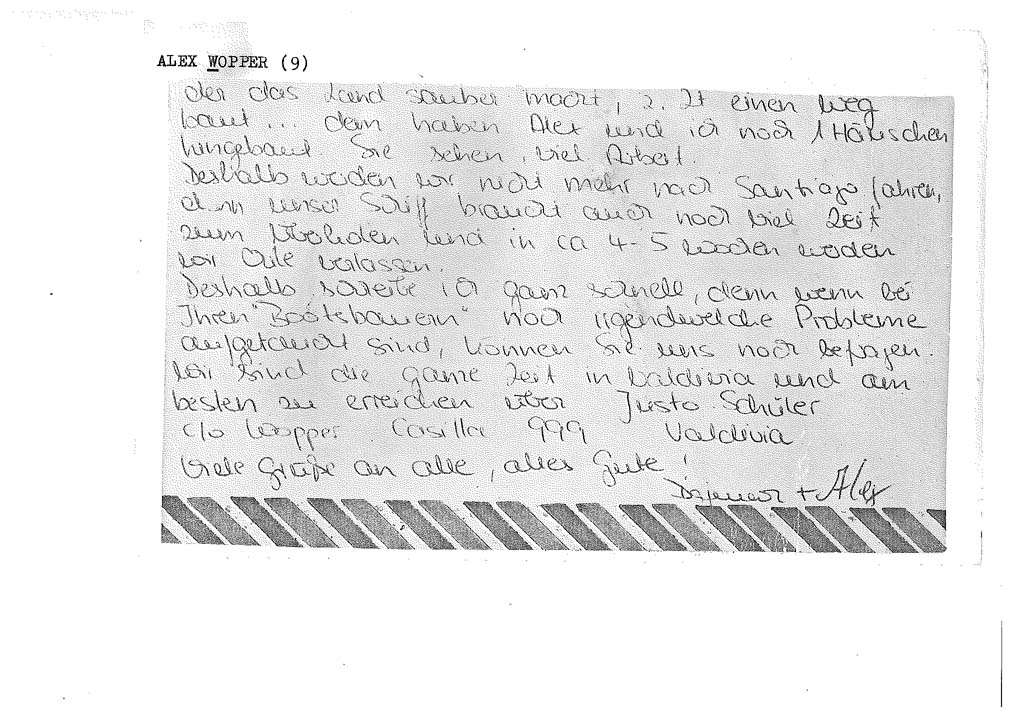 ALEX WOPPER (9)
der das Land sauber macht, z. Zt einen Weg
baut... dann haben Alex und ich noch 1 Häuschen
hingebaut. Sie sehen, viel Arbeit.
Deshalb werden wir nicht mehr nach Santiago fahren,
denn unser Schiff braucht auch noch viel Zeit
zum Überholen und in ca 4-5 Wochen werden
wir Chile verlassen.
Deshalb schreibe ich ganz schnell, denn wenn bei
Ihren "Bootsbauern" noch irgendwelche Probleme
aufgetaucht sind, können Sie uns noch befragen.
Wir sind die ganze Zeit in Valdivia und am
besten zu erreichen über Justo Schüler
c/o Wopper. Casilla 999 Valdivia
Viele Grüße an alle, alles Gute!
+ Alex